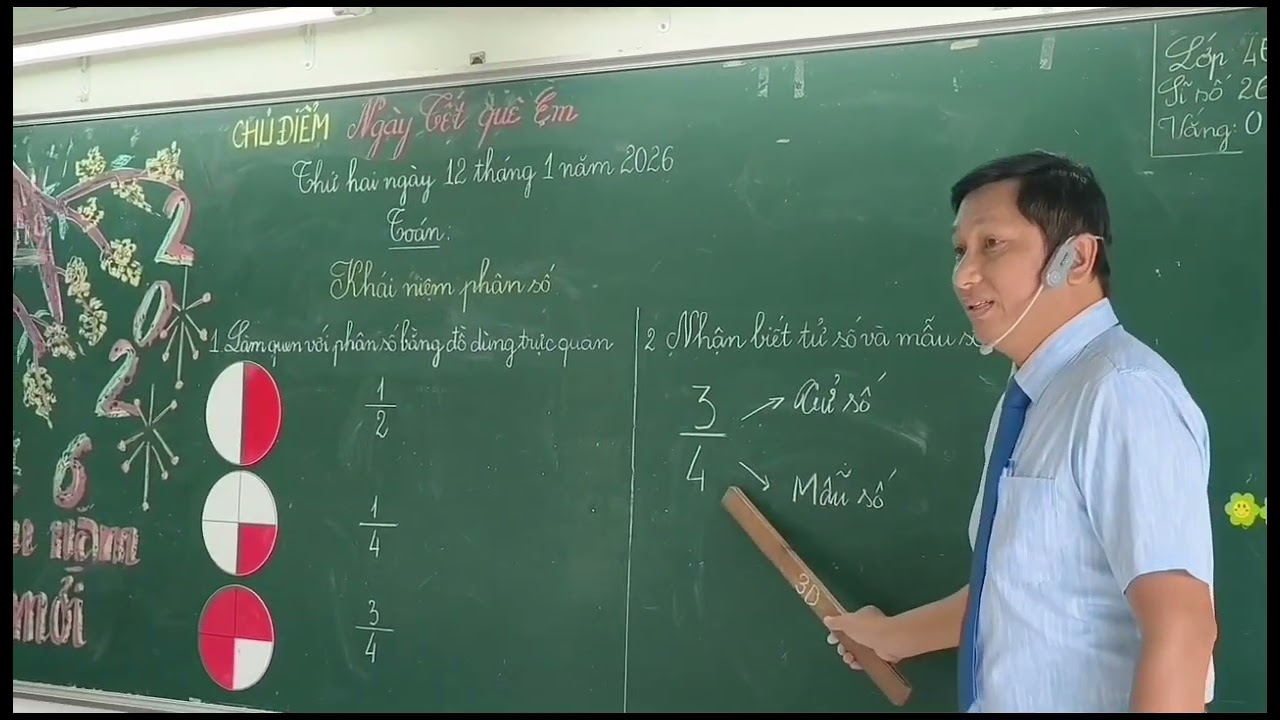 CHỦ ĐIỂM Ngày Tết quê Em
Thứ hai ngày 12 tháng 1 năm 2026
Toán:
Khái niệm phân số
1. Làm quen với phân số bằng đồ dùng trực quan
1
2
1
4
3
4
2 Nhận biết tử số và mẫu s
3
4
Tử số
Mẫu số
Lớp 4
Sĩ số 26
Vắng: 0
2
0
2
6
năm
mới
3D